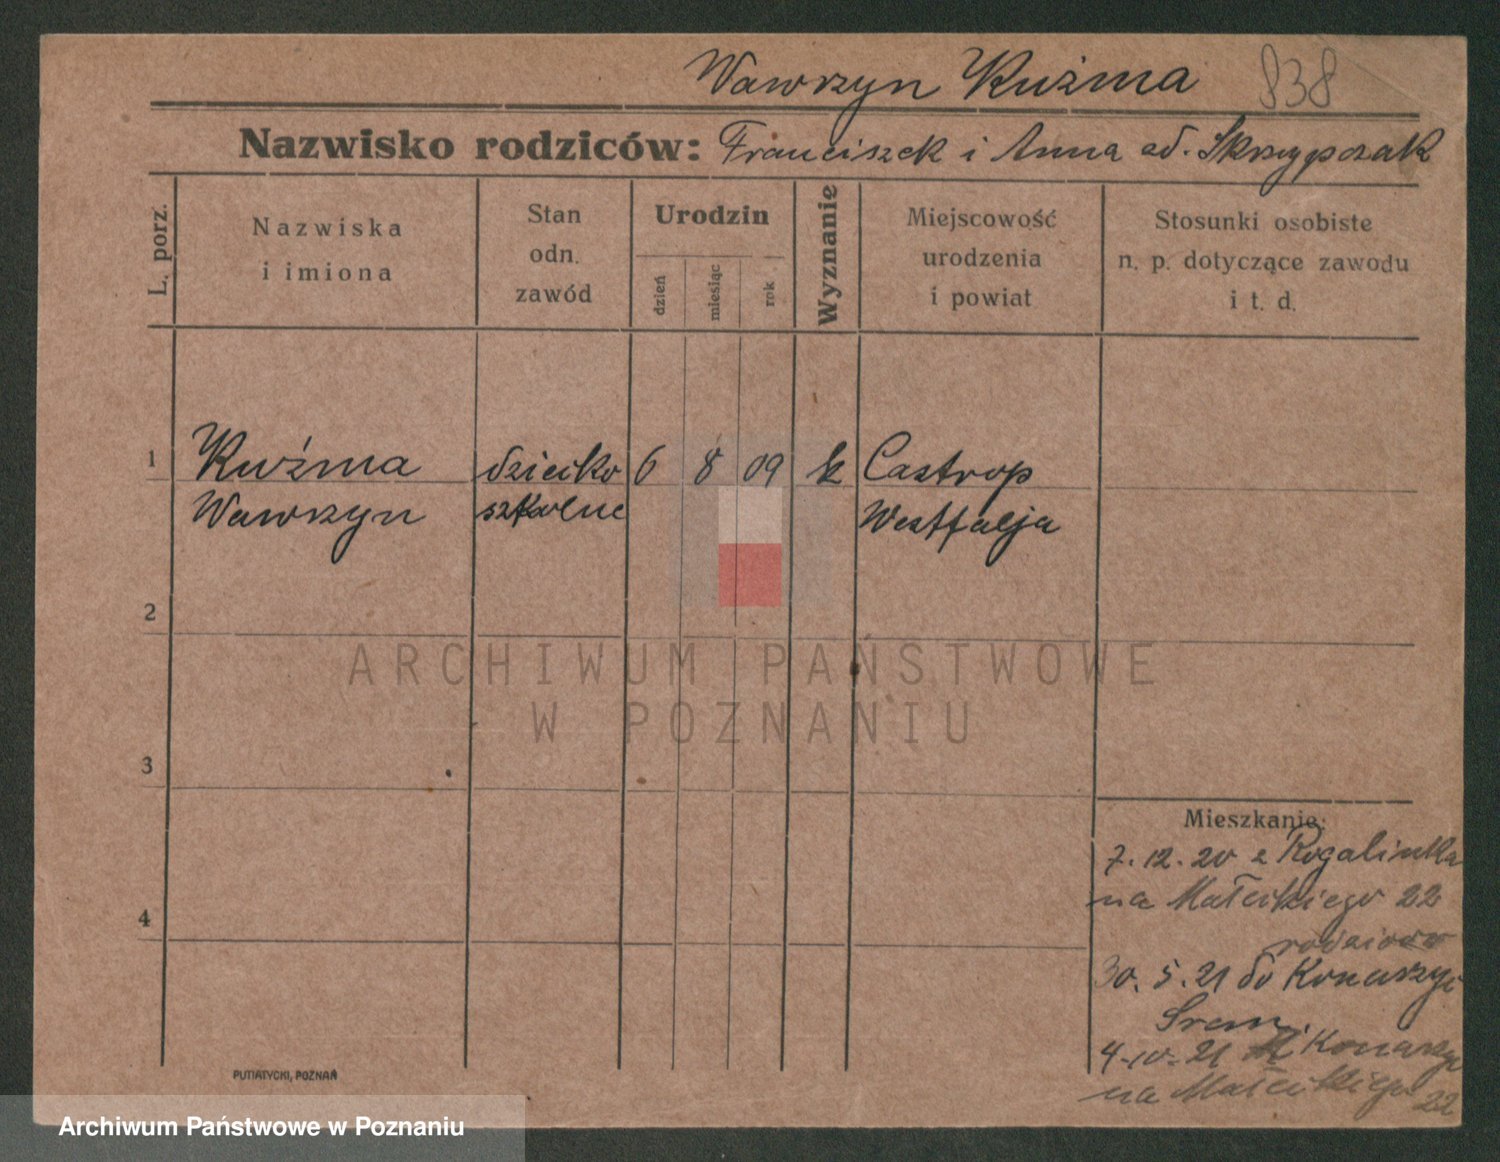 Wawrzyn Kuźma 838
Nazwisko rodziców: Franciszek i Anna od. Skrzypczak
L. porz.
Nazwiska
i imiona
Stan
odn.
zawód
Urodzin
dzień
miesiąc
rok
Wyznanie
Miejscowość
urodzenia
i powiat
Stosunki osobiste
n. p. dotyczące zawodu
i t. d.
1 Kuźma dziecko 6 8 09 k Castrop
Wawrzyn szkolne Westfalja
2
ARCHIWUM PAŃSTWOWE
W POZNANIU
3
Mieszkanie:
7. 12. 20 z Rogalinka
na Małeckiego 22
4
30. 5. 21 do Konarzyc
Srem.
4-10-21 Konarzyc
na Małeckiego
22
PUTIATYCKI, POZNAŃ
Archiwum Państwowe w Poznaniu